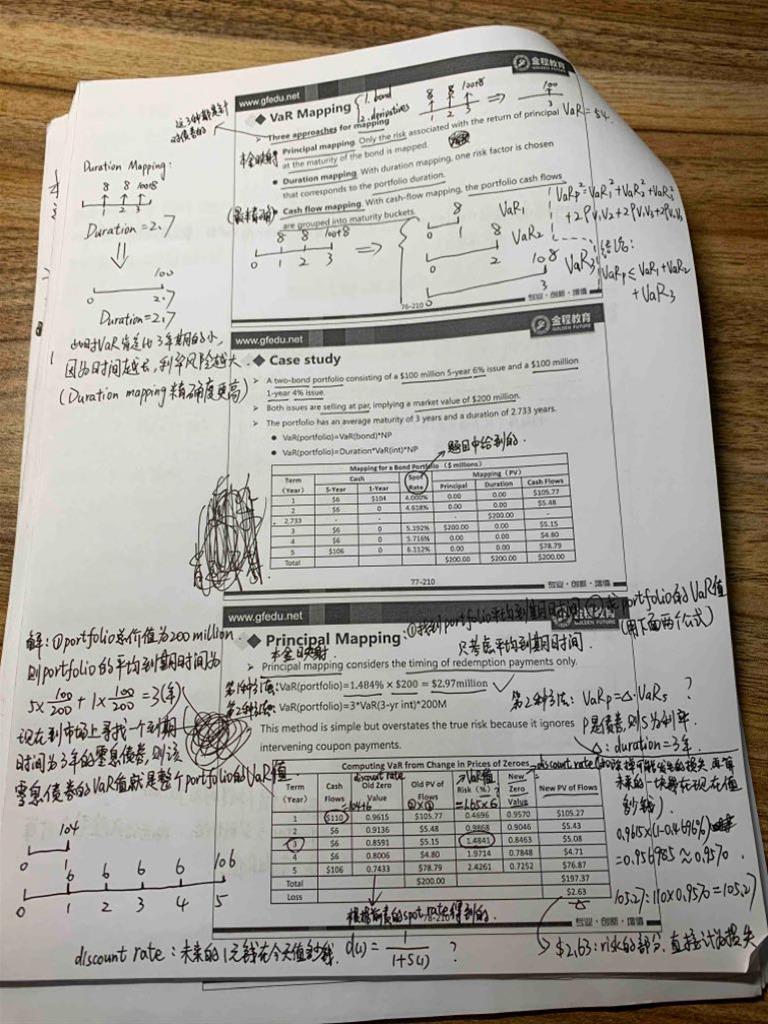 www.gfedu.net
金程教育
GOLDEN FUTURE
◆ VaR Mapping
1. bond
2. derivatives
8 8 100+8
1 2 3
⇒
100
3
VaR = 54.
这3种都是针对债券的
➢ Three approaches for mapping
本金映射
● Principal mapping. Only the risk associated with the return of principal at the maturity of the bond is mapped.
● Duration mapping. With duration mapping, one risk factor is chosen that corresponds to the portfolio duration.
(最精确)
● Cash flow mapping. With cash-flow mapping, the portfolio cash flows are grouped into maturity buckets.
8 8 100+8
0 1 2 3
⇒
8
0 1
VaR1
8
0 2
VaR2
108
0 3
VaR3
VaRp²=VaR1²+VaR2²+VaR3²
+2ρV1V2+2ρV1V3+2ρV2V3
结论:
VaRp≤VaR1+VaR2
+VaR3
76-210
专业·创新·增值
Duration Mapping:
8 8 100+8
0 1 2 3
Duration=2.7
⇓
100
0 2.7
Duration=2.7
此时VaR肯定比3年期的小,
因为时间在越长,利率风险越大.
(Duration mapping精确度更高)
www.gfedu.net
金程教育
GOLDEN FUTURE
◆ Case study
➢ A two-bond portfolio consisting of a $100 million 5-year 6% issue and a $100 million
1-year 4% issue.
➢ Both issues are selling at par, implying a market value of $200 million.
➢ The portfolio has an average maturity of 3 years and a duration of 2.733 years.
● VaR(portfolio)=VaR(bond)*NP
● VaR(portfolio)=Duration*VaR(int)*NP
题目中给到的.
Mapping for a Bond Portfolio ($ millions)
Term (Year) Cash Spot Rate Mapping (PV)
5-Year 1-Year Principal Duration Cash Flows
1 $6 $104 4.000% 0.00 0.00 $105.77
2 $6 0 4.618% 0.00 0.00 $5.48
2.733 - - - - $200.00 -
3 $6 0 5.192% $200.00 0.00 $5.15
4 $6 0 5.716% 0.00 0.00 $4.80
5 $106 0 6.112% 0.00 0.00 $78.79
Total $200.00 $200.00 $200.00
77-210
专业·创新·增值
www.gfedu.net
◆ Principal Mapping:
①找到portfolio平均到期日时间
②求portfolio的VaR值
(用下面两个公式)
本金映射
只考虑平均到期日时间.
➢ Principal mapping considers the timing of redemption payments only.
第1种方法: VaR(portfolio)=1.484% × $200 = $2.97million
第2种方法: VaR(portfolio)=3*VaR(3-yr int)*200M
第2种方法: VaRp=Δ·VaRs ?
P是债券,则S为利率.
Δ: duration=3年.
This method is simple but overstates the true risk because it ignores
intervening coupon payments.
Computing VaR from Change in Prices of Zeroes
discount rate
=104+6
VaR值
=1.65×6
Term (Year) Cash Flows Old Zero Value Old PV of Flows Risk (%) New Zero Value New PV of Flows
1 $110 0.9615 $105.77 0.4696 0.9570 $105.27
2 $6 0.9136 $5.48 0.9868 0.9046 $5.43
3 $6 0.8591 $5.15 1.4841 0.8463 $5.08
4 $6 0.8006 $4.80 1.9714 0.7848 $4.71
5 $106 0.7433 $78.79 2.4261 0.7252 $76.87
Total $200.00 $197.37
Loss $2.63
78-210
专业·创新·增值
根据前表的spot rate得到的.
解:①portfolio总价值为200 million.
则portfolio的平均到期日时间为
5×100/200+1×100/200=3(年)
现在到市场上寻找一个到期
时间为3年的零息债券,则该
零息债券的VaR值就是整个portfolio的VaR值.
104
0 1
6 6 6 6 106
0 1 2 3 4 5
0.9615×(1-0.4696%)
=0.956985≈0.9570.
105.27: 110×0.9570=105.27
discount rate:未来的1元钱在今天值多少钱. d(1)=1/(1+S(1)) ?
$2.63: risk的部分,直接计为损失